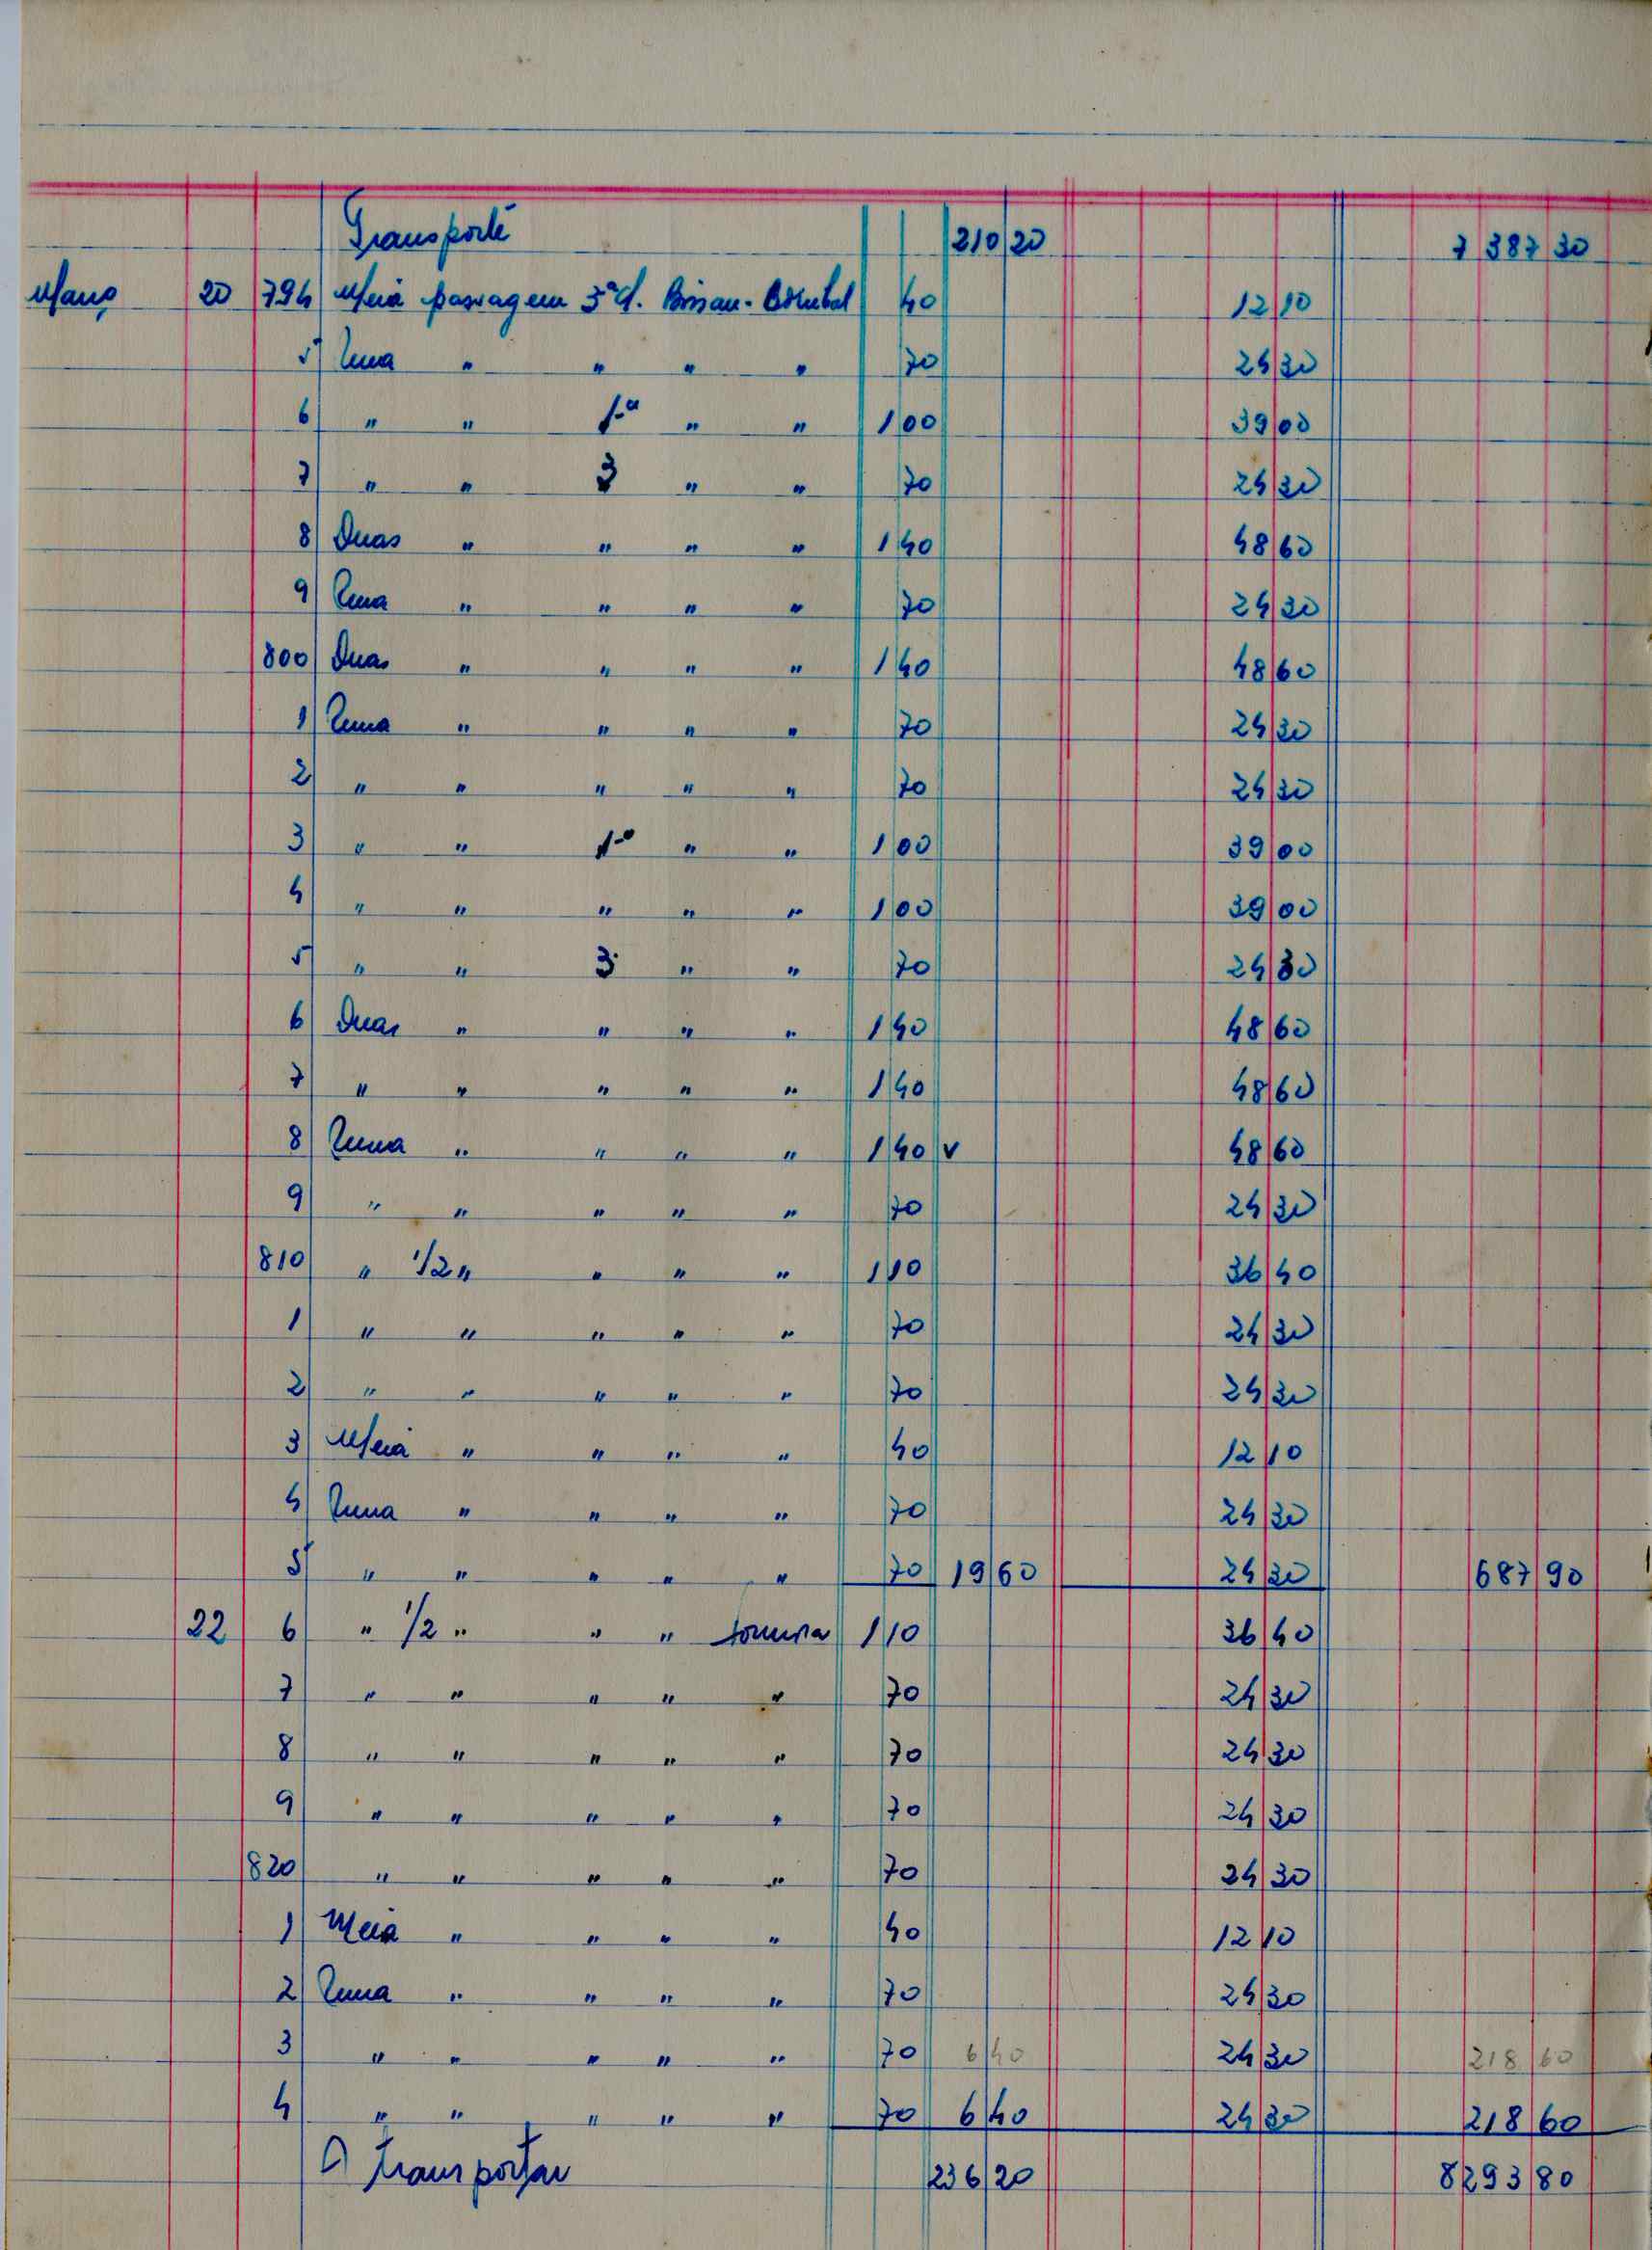 Transporte 210 20 7 387 30
Março 20 794 Meia passagem 3ª cl. Bissau- 40 12 10
5 Uma " " " " 70 24 30
6 " " 1ª " " 1 00 39 00
7 " " 3 " " 70 24 30
8 Duas " " " " 1 40 48 60
9 Uma " " " " 70 24 30
800 Duas " " " " 1 40 48 60
1 Uma " " " " 70 24 30
2 " " " " " 70 24 30
3 " " 1ª " " 1 00 39 00
4 " " " " " 1 00 39 00
5 " " 3 " " 70 24 30
6 Duas " " " " 1 40 48 60
7 " " " " " 1 40 48 60
8 Uma " " " " 1 40 v 48 60
9 " " " " " 70 24 30
810 " 1/2 " " " " 1 10 36 40
1 " " " " " 70 24 30
2 " " " " " 70 24 30
3 Meia " " " " 40 12 10
4 Uma " " " " 70 24 30
5 " " " " " 70 19 60 24 30 687 90
22 6 " 1/2 " " " 1 10 36 40
7 " " " " " 70 24 30
8 " " " " " 70 24 30
9 " " " " " 70 24 30
820 " " " " " 70 24 30
1 Meia " " " " 40 12 10
2 Uma " " " " 70 24 30
3 " " " " " 70 6 40 24 30 218 60
4 " " " " " 70 6 40 24 30 218 60
A transportar 236 20 8 293 80